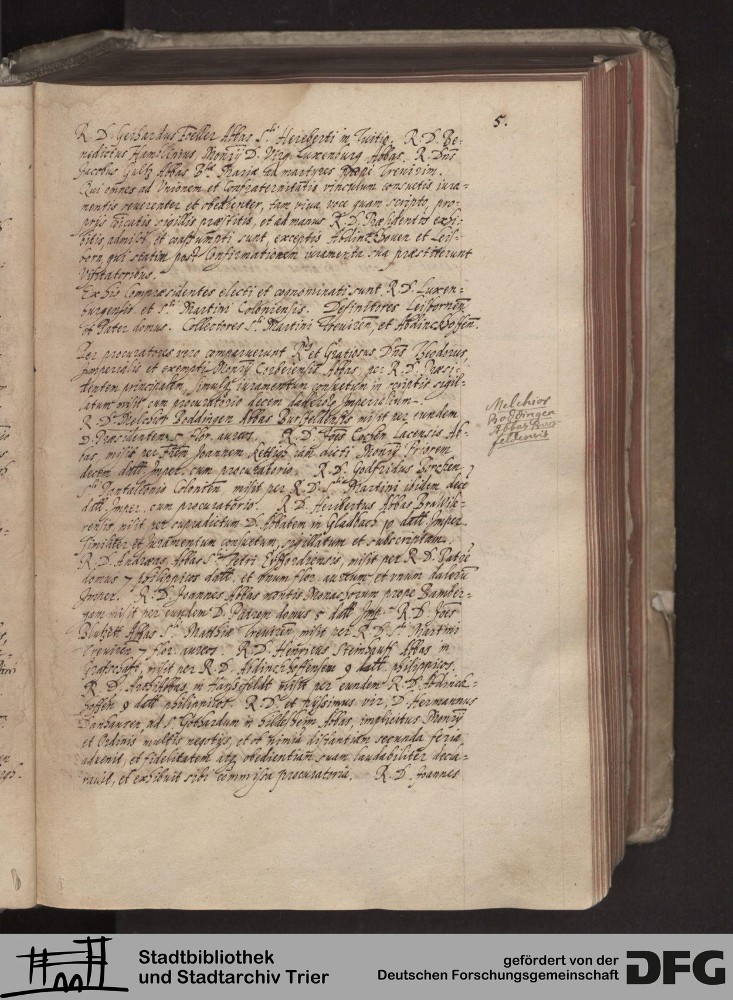 5.
R. D. Gerhardus Foeller Abbas S.ti Hereberti in Tuitio. R. D. Be-
nedictus Monrÿ D. Virg. Luxenburg Abbas. R. Dns
Jacobus Abbas B.tae Mariae ad martyres prope Trevirim.
Qui omnes ad Unionem et Confraternitatis vinculum consuetis iura-
mentis reverenter et obedienter, tam viva voce quam scripto, pro-
prijs sigillis praestitis, et ad manus R. D. Praesidentis exhi-
bitis admissi, et consumpti sunt, exceptis Abdinckhoven et Leis-
born, qui statim post Confirmationem iuramenta sua praestiterunt
Visitatoribus.
Ex his Compraesidentes electi et cognominati sunt R. D. Luxen-
burgensis et S.ti Martini Coloniensis. Definitores Leisbornen
et Pater domus. Collectores S.ti Martini Treviren, et Abdinckhoffen.
Per procuratores vero comparuerunt R.dus et Gratiosus Dns Theodorus
Imperialis et exempti Monrÿ Corbeiensis Abbas per R. D. Praesi-
dentem principalem, simulque iuramentum consuetum in scriptis sigil-
latum misit cum procuratorio decem daleros Imperialium.
R. D. Melchior Boddingen Abbas Bursfeldensis misit per eundem
D. Praesidentem 5 flor. aureos. R. D. Joes Cochen Lacensis Ab-
bas, misit per frem Joannem dicti Monrÿ Priorem
decem dall. Imper. cum procuratorio. R. D. Godfridus
S.ti Pantaleonis Colonien. misit per R. D. S.ti Martini ibidem dece
dall. Imper. cum procuratorio. R. D. Heribertus Abbas Brawile-
rensis, misit per supradictum D. Abbatem in Gladbach 10 dall. Imper.
Similiter et iuramentum consuetum, sigillatum et subscriptum.
R. D. Andreas Abbas S.ti Petri Erffordiensis, misit per R. D. Patre
domus 7 philippicos dall. et unum flor. aureum et unum daleru
Imper. R. D. Joannes Abbas montis Monachorum prope Bamber-
gam misit per eundem D. Patrem domus 5 dall. Imp. R. D. Joes
Abbas S.ti Matthiae Treviren, misit per R. D. S.ti Martini
Treviren 7 flor. aureos. R. D. Henricus Abbas in
Grafschaft, misit per R. D. Abdinckhoffensem 9 dall. philippicos.
R. D. Archiabbas in Hansfeldt misit per eundem R. D. Abdinck-
hoffen 9 dall. philippicos. R. D.s et vir, D. Hermannus
Danhausen, ad S. Gothardum in Hildesheim Abbas, implicitus Monrÿ
et Ordinis multis negotijs, et ob nimia distantiam secunda feria
advenit, et fidelitatem atque obedientiam suam laudabiliter decla-
ravit, et exhibuit sibi commissa procuratoria. R. D. Joannes
Melchior
Boddingen
Abbas Burs
feldensis
Stadtbibliothek
und Stadtarchiv Trier
gefördert von der
Deutschen Forschungsgemeinschaft
DFG